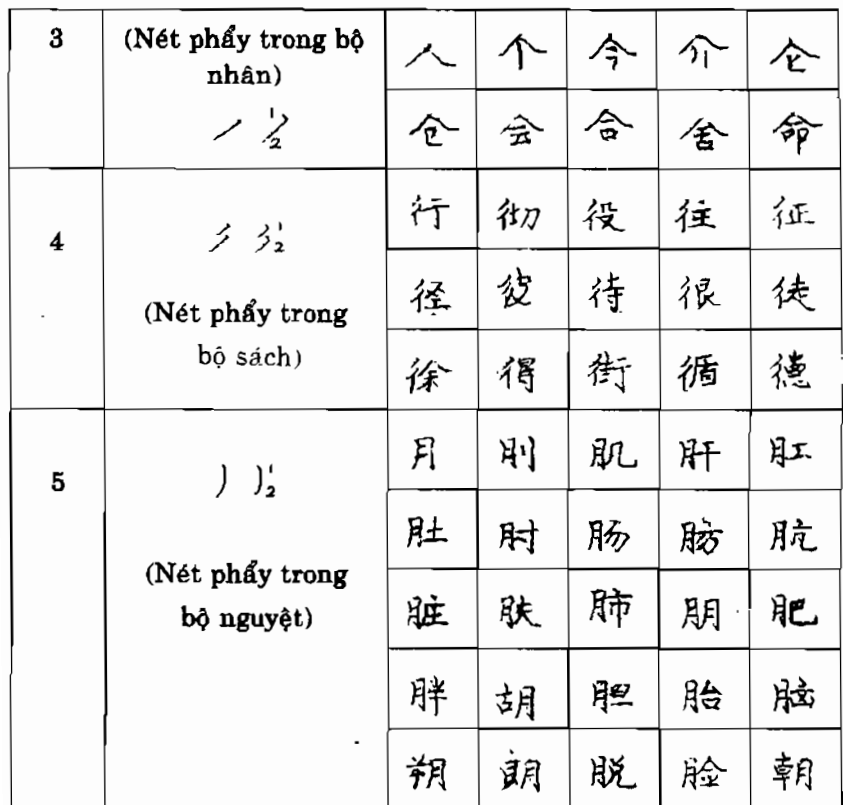 3
(Nét phẩy trong bộ
nhân)
1
2
人 个 今 介 仑
仓 会 合 舍 命
4
1
2
(Nét phẩy trong
bộ sách)
行 彻 役 往 征
径 彼 待 很 徒
徐 得 街 循 德
5
1
2
(Nét phẩy trong
bộ nguyệt)
月 刖 肌 肝 肛
肚 肘 肠 肪 肮
脏 肤 肺 朋 肥
胖 胡 胆 胎 脑
朔 朗 脱 脸 朝